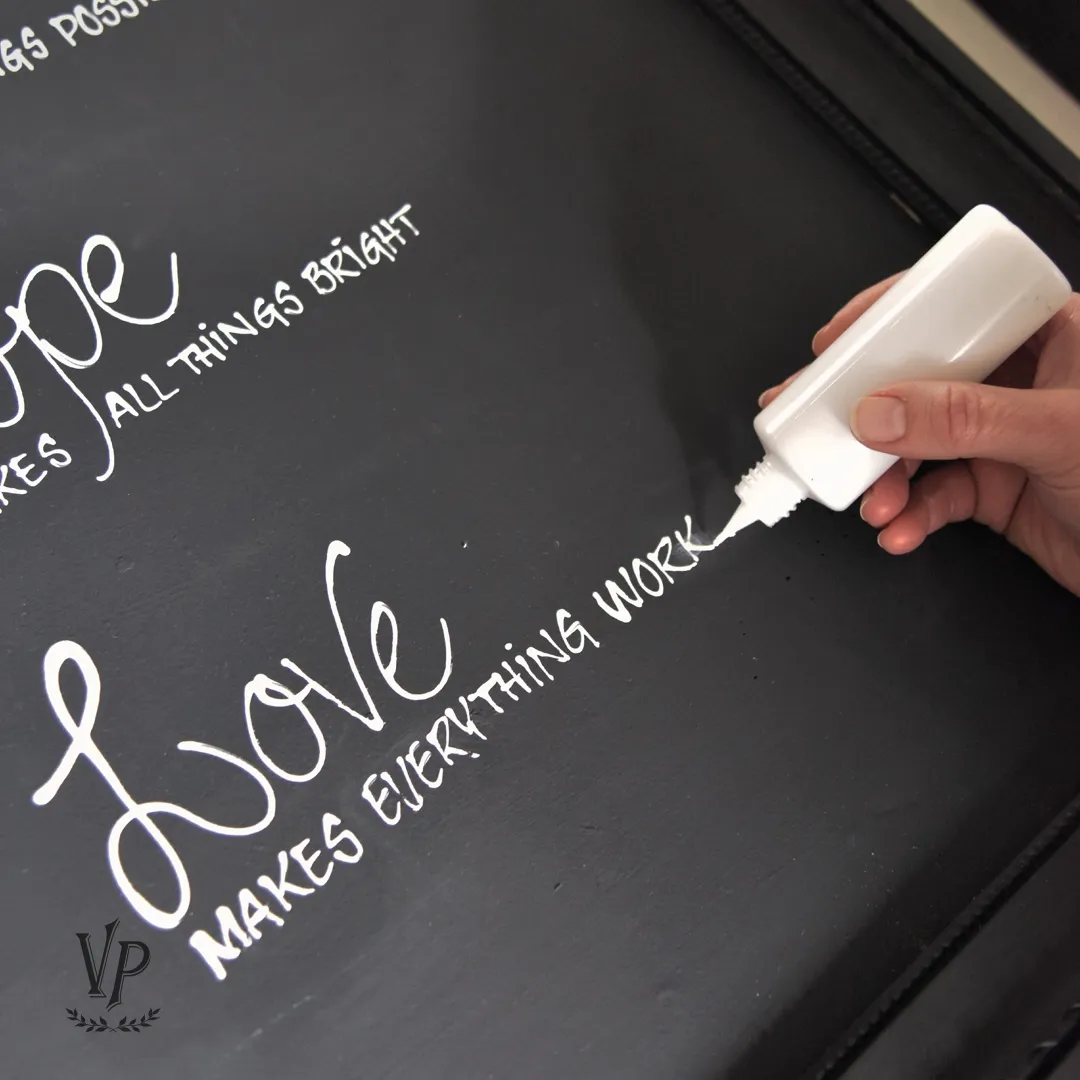 NGS POSSI
ope
AKES ALL THiNGS BRiGHT
Love
MAKES EVERYTHiNG WORK
VP